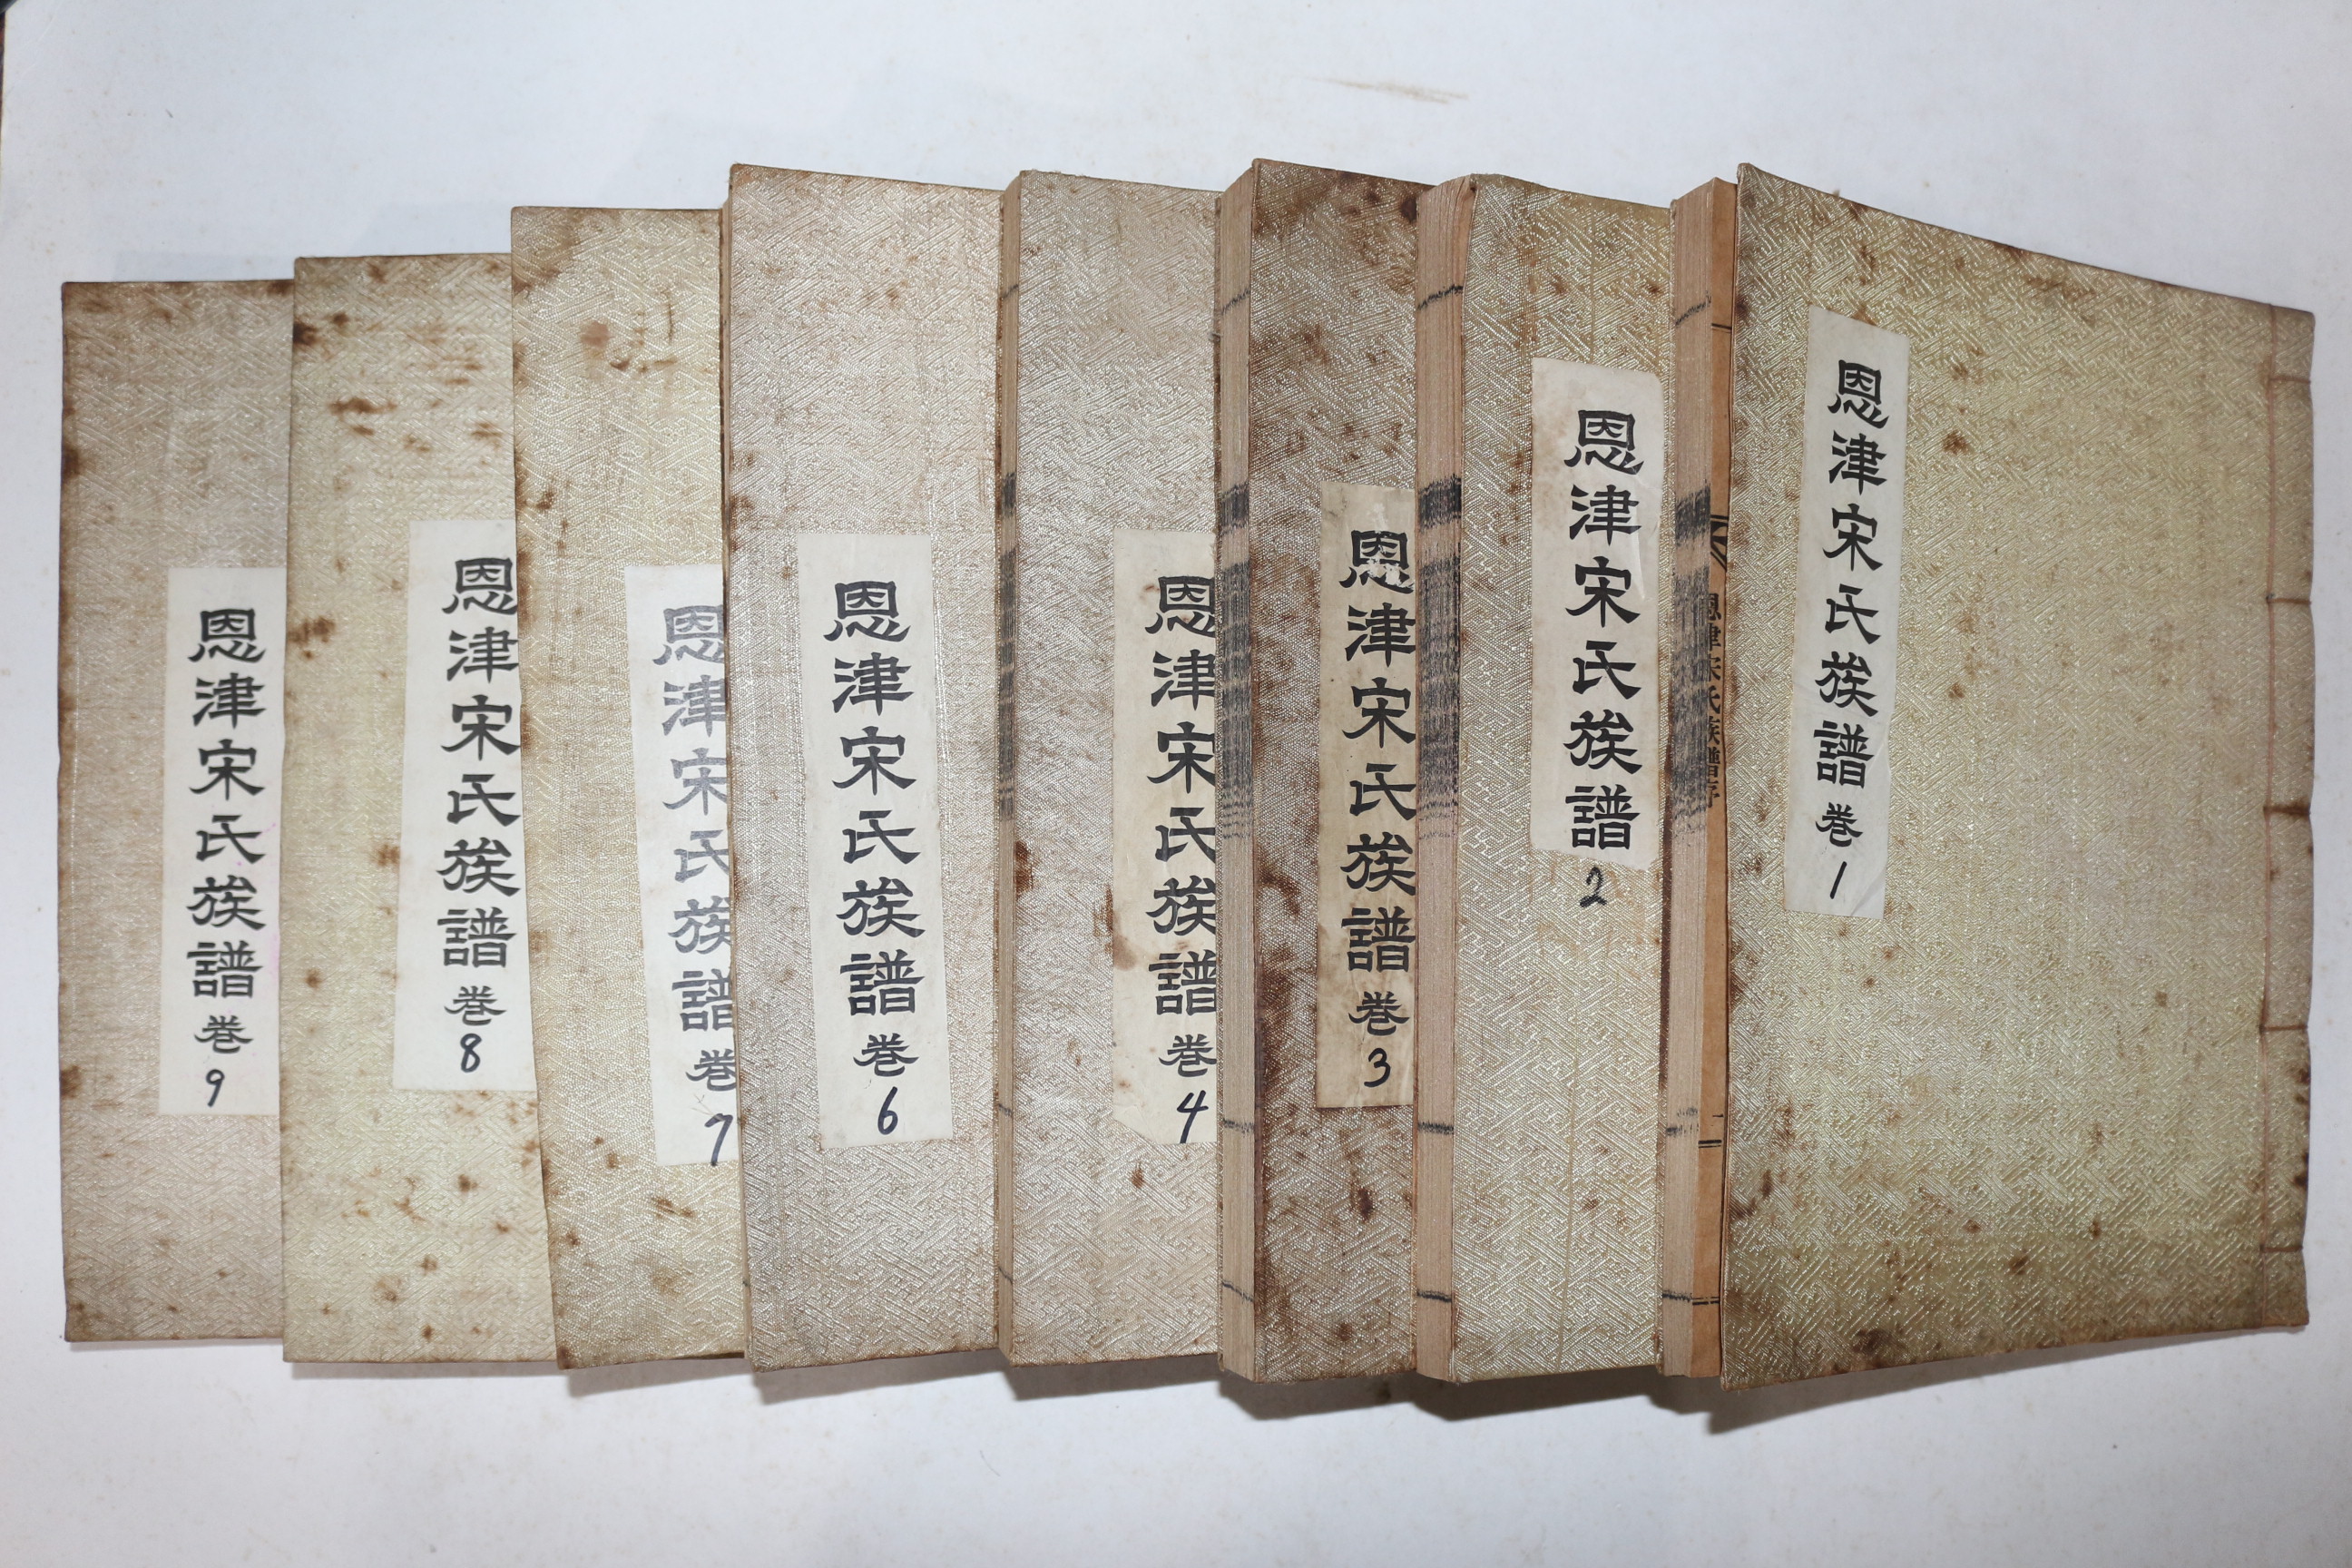 恩津宋氏族譜 巻 1
恩津宋氏族譜序
恩津宋氏族譜 2
恩津宋氏族譜 巻 3
恩津宋氏族譜 巻 4
恩津宋氏族譜 巻 6
恩津宋氏族譜 巻 7
恩津宋氏族譜 巻 8
恩津宋氏族譜 巻 9